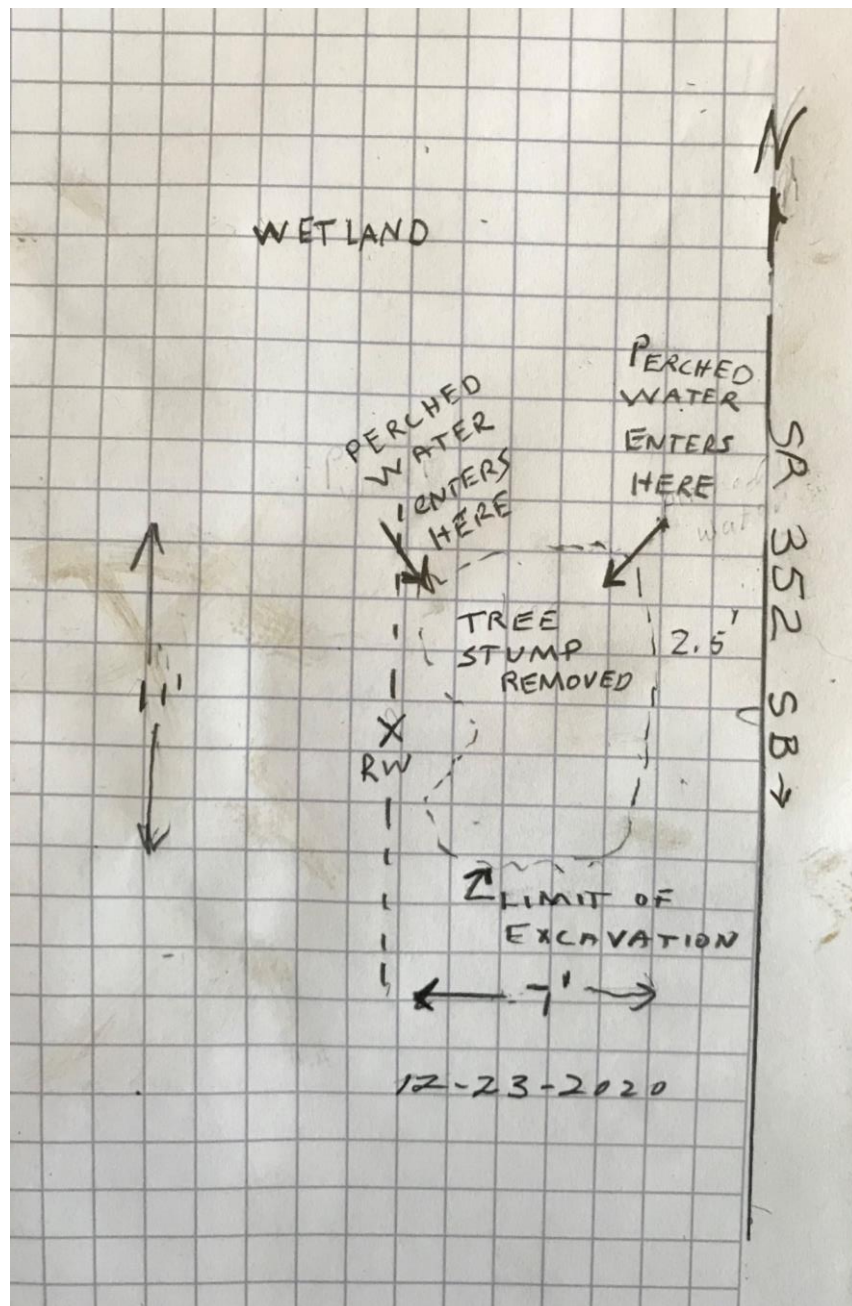 N
WETLAND
PERCHED
WATER
ENTERS
HERE
PERCHED
WATER
ENTERS
HERE
SR 352 SB →
TREE
STUMP
REMOVED
2.5'
11'
X
RW
LIMIT OF
EXCAVATION
7'
12-23-2020